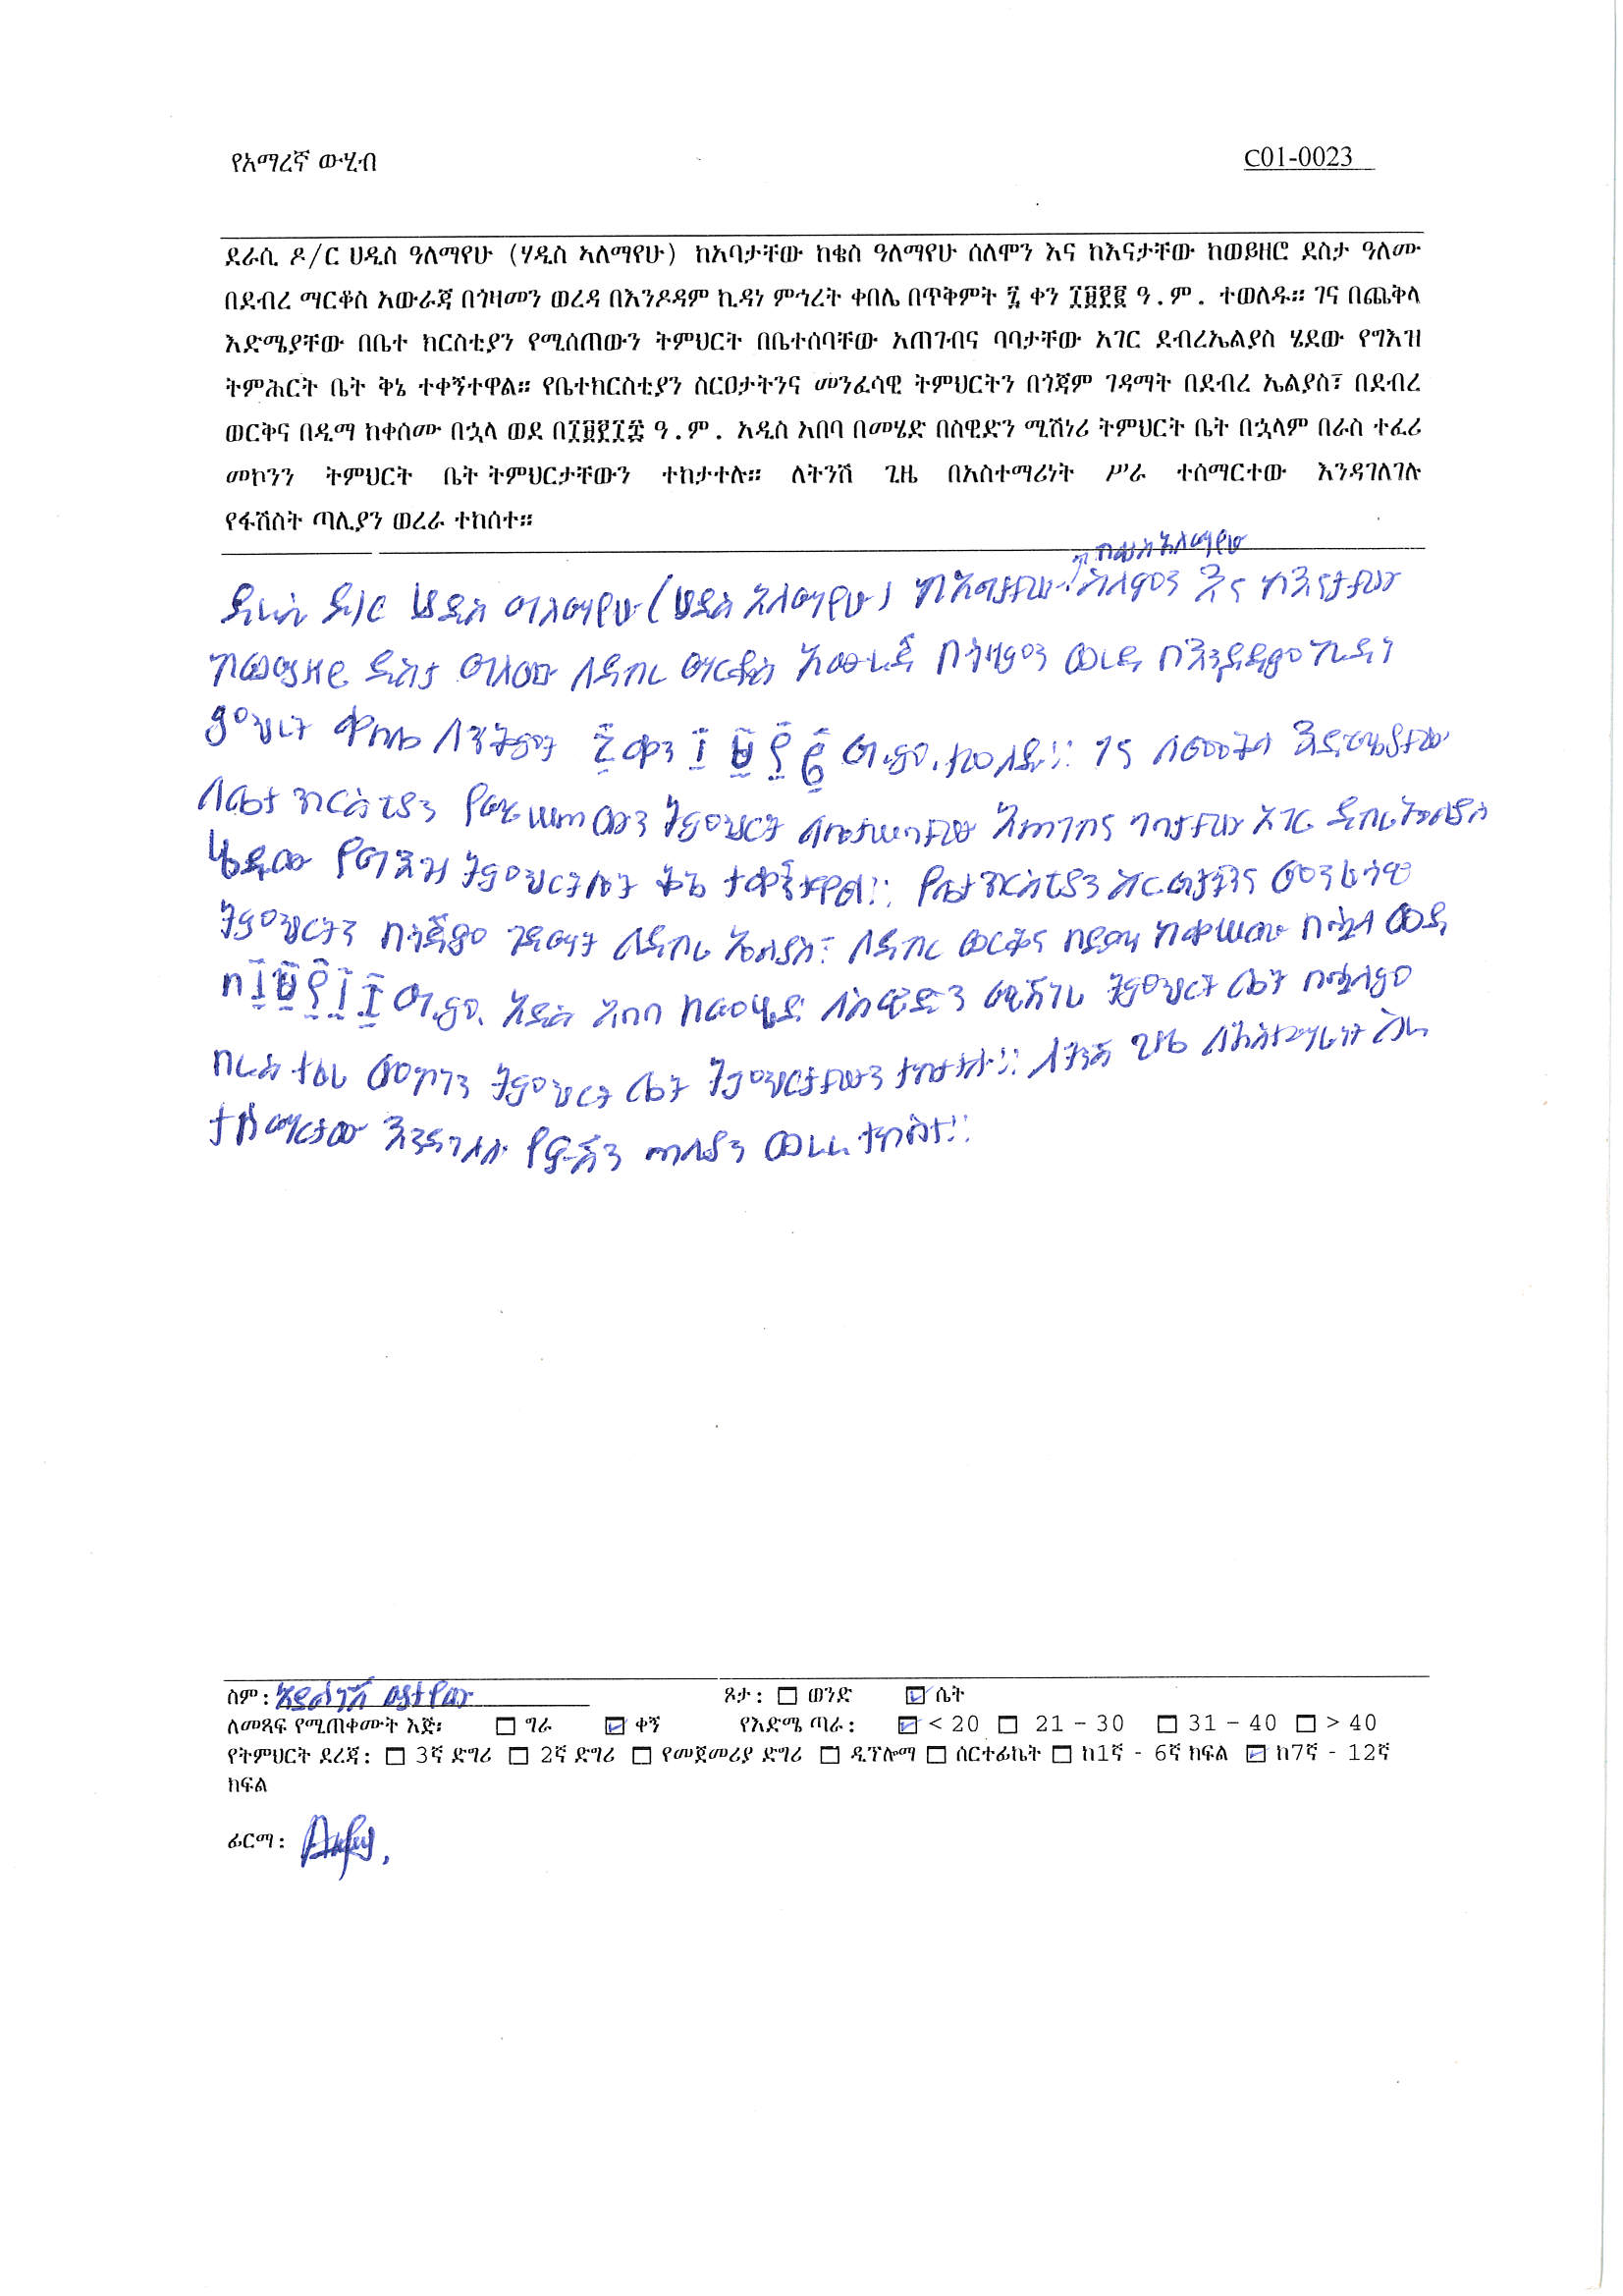 የአማረኛ ውሂብ
C01-0023
ደራሲ ዶ/ር ሀዲስ ዓለማየሁ (ሃዲስ ኣለማየሁ) ከአባታቸው ከቄስ ዓለማየሁ ሰለሞን እና ከእናታቸው ከወይዘሮ ደስታ ዓለሙ
በደብረ ማርቆስ አውራጃ በጎዛመን ወረዳ በእንዶዳም ኪዳነ ምኅረት ቀበሌ በጥቅምት ፯ ቀን ፲፱፻፪ ዓ.ም. ተወለዱ። ገና በጨቅላ
እድሜያቸው በቤተ ክርስቲያን የሚሰጠውን ትምህርት በቤተሰባቸው አጠገብና ባባታቸው አገር ደብረኤልያስ ሄደው የግእዝ
ትምሕርት ቤት ቅኔ ተቀኝተዋል። የቤተክርስቲያን ስርዐታትንና መንፈሳዊ ትምህርትን በጎጃም ገዳማት በደብረ ኤልያስ፣ በደብረ
ወርቅና በዲማ ከቀሰሙ በኋላ ወደ በ፲፱፻፲፰ ዓ.ም. አዲስ አበባ በመሄድ በስዊድን ሚሽነሪ ትምህርት ቤት በኋላም በራስ ተፈሪ
መኮንን ትምህርት ቤት ትምህርታቸውን ተከታተሉ። ለትንሽ ጊዜ በአስተማሪነት ሥራ ተሰማርተው እንዳገለገሉ
የፋሽስት ጣሊያን ወረራ ተከሰተ።
አለማየሁ
ደራሲ ዶ/ር ሀዲስ ዓለማየሁ (ሀዲስ አለማየሁ) ከአባታቸው ሰለሞን እና ከእናታቸው
ከወይዘሮ ደስታ ዓለሙ በደብረ ማርቆስ አውራጃ በጎዛምን ወረዳ በእንዶዳም ኪዳነ
ምህረት ቀበሌ በጥቅምት ፯ ቀን ፲ ፱ ፻ ፪ ዓ.ም. ተወለዱ። ገና እድሜያቸው
በቤተ ክርስቲያን የሚሠጠውን ትምህርት በቤተሠባቸው አጠገብና ባባታቸው አገር ደብረኤልያስ
ሄደው የግእዝ ትምህርትቤት ቅኔ ተቀኝተዋል። የቤተ ክርስቲያን ስርዐታትንና መንፈሳዊ
ትምህርትን በጎጃም ገዳማት በደብረ ኤልያስ፣ በደብረ ወርቅና በዲማ ከቀሠሙ በኋላ ወደ
በ፲፱፻፲ ዓ.ም. አዲስ አበባ በመሄድ በስዊድን ሚሽነሪ ትምህርት ቤት በኋላም
በራስ ተፈሪ መኮንን ትምህርት ቤት ትምህርታቸውን ተከታተሉ። ለትንሽ ጊዜ በአስተማሪነት ስራ
ተሰማርተው እንዳገለገሉ ጣሊያን ወረራ ተከሰተ።
ስም:
ጾታ: ወንድ ሴት
ለመጻፍ የሚጠቀሙት እጅ፡ ግራ ቀኝ የእድሜ ጣራ: < 20 21 – 30 31 – 40 > 40
የትምህርት ደረጃ: 3ኛ ድግሪ 2ኛ ድግሪ የመጀመሪያ ድግሪ ዲፕሎማ ሰርተፊኬት ከ1ኛ - 6ኛ ክፍል ከ7ኛ - 12ኛ
ክፍል
ፊርማ: